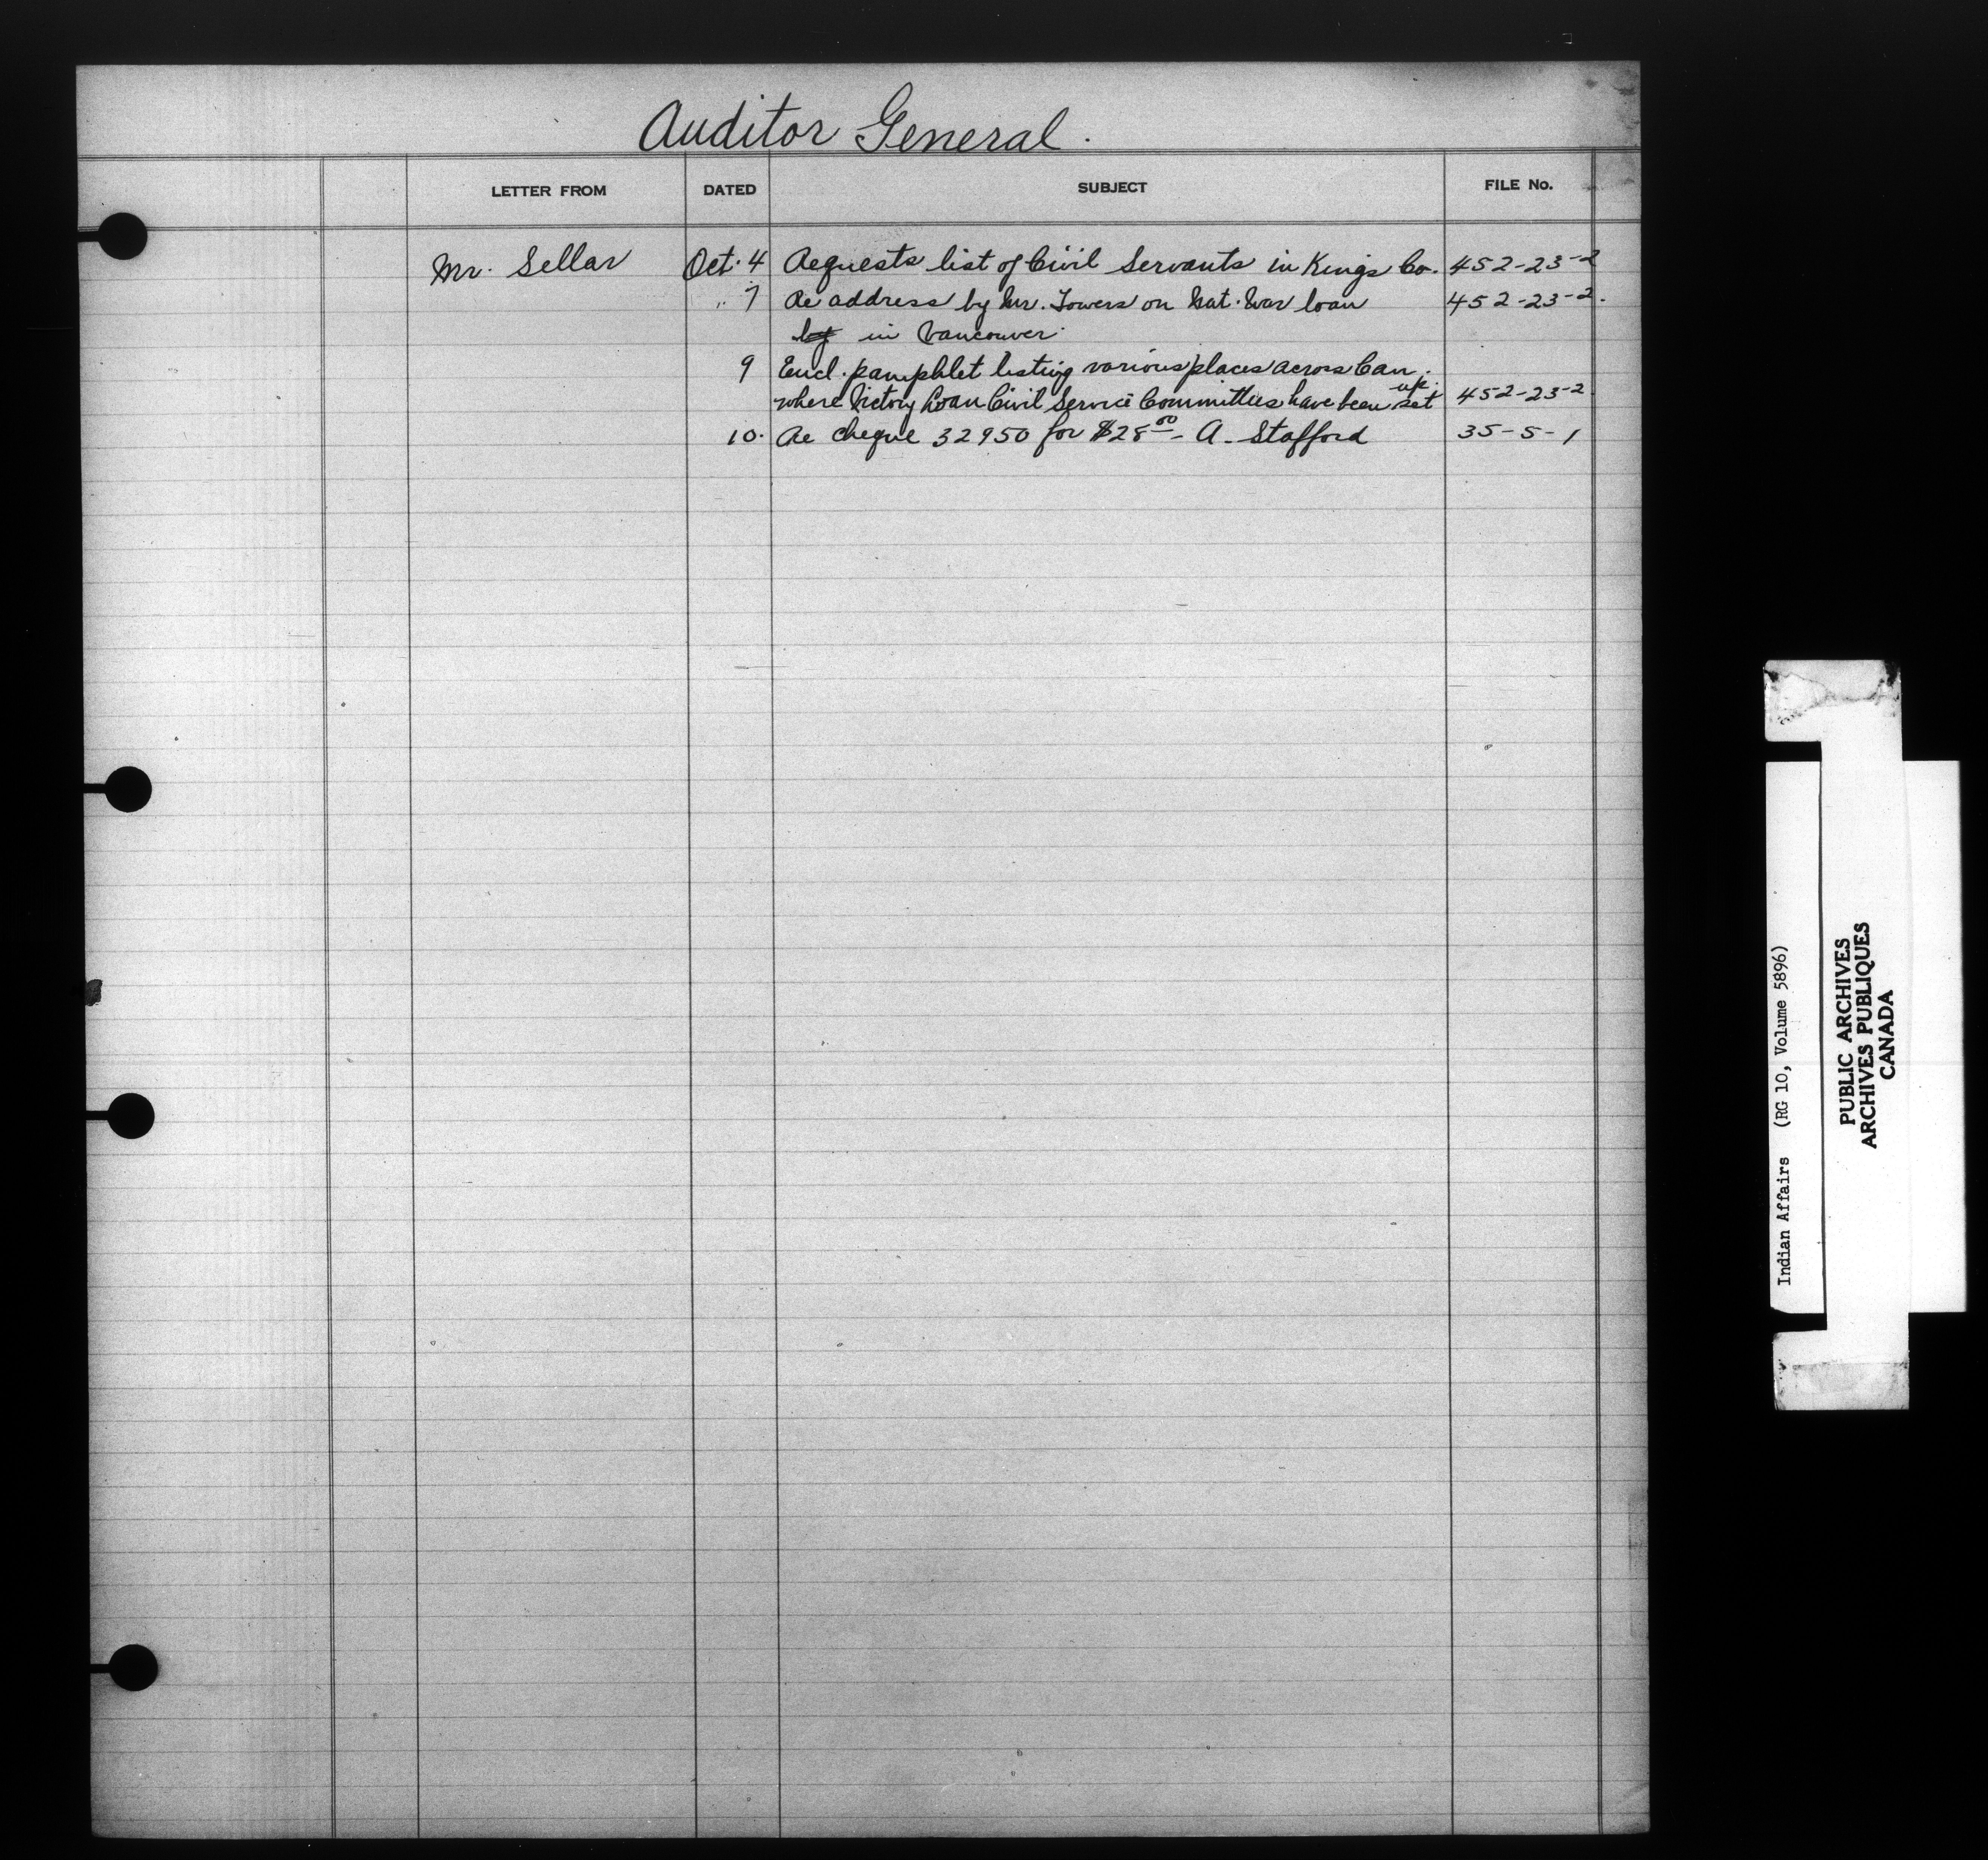 Auditor General.
LETTER FROM DATED SUBJECT FILE No.
Mr. Sellar Oct. 4 Requests list of Civil Servants in Kings Co. 452-23-2
" 7 Re address by Mr. Towers on Nat. War loan 452-23-2.
by in Vancouver.
9 Encl. pamphlet listing various places across Can.
where Victory Loan Civil Service Committees have been set up. 452-23-2
10. Re cheque 32950 for $28.00 - A. Stafford 35-5-1
Indian Affairs (RG 10, Volume 5896)
PUBLIC ARCHIVES
ARCHIVES PUBLIQUES
CANADA